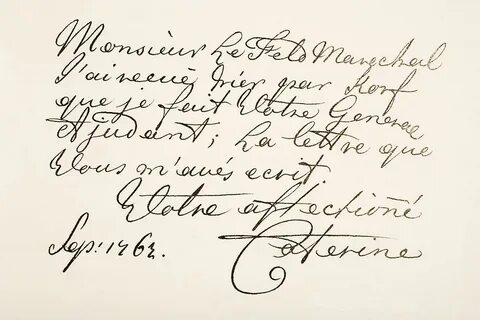 Monsieur le Feld Marechal
J'ai recue hier par Korf
que je fait Votre General
Ajudant; la lettre que
Vous m'avés ecrit.
Votre affectioñé
Caterine
Sep: 1762.